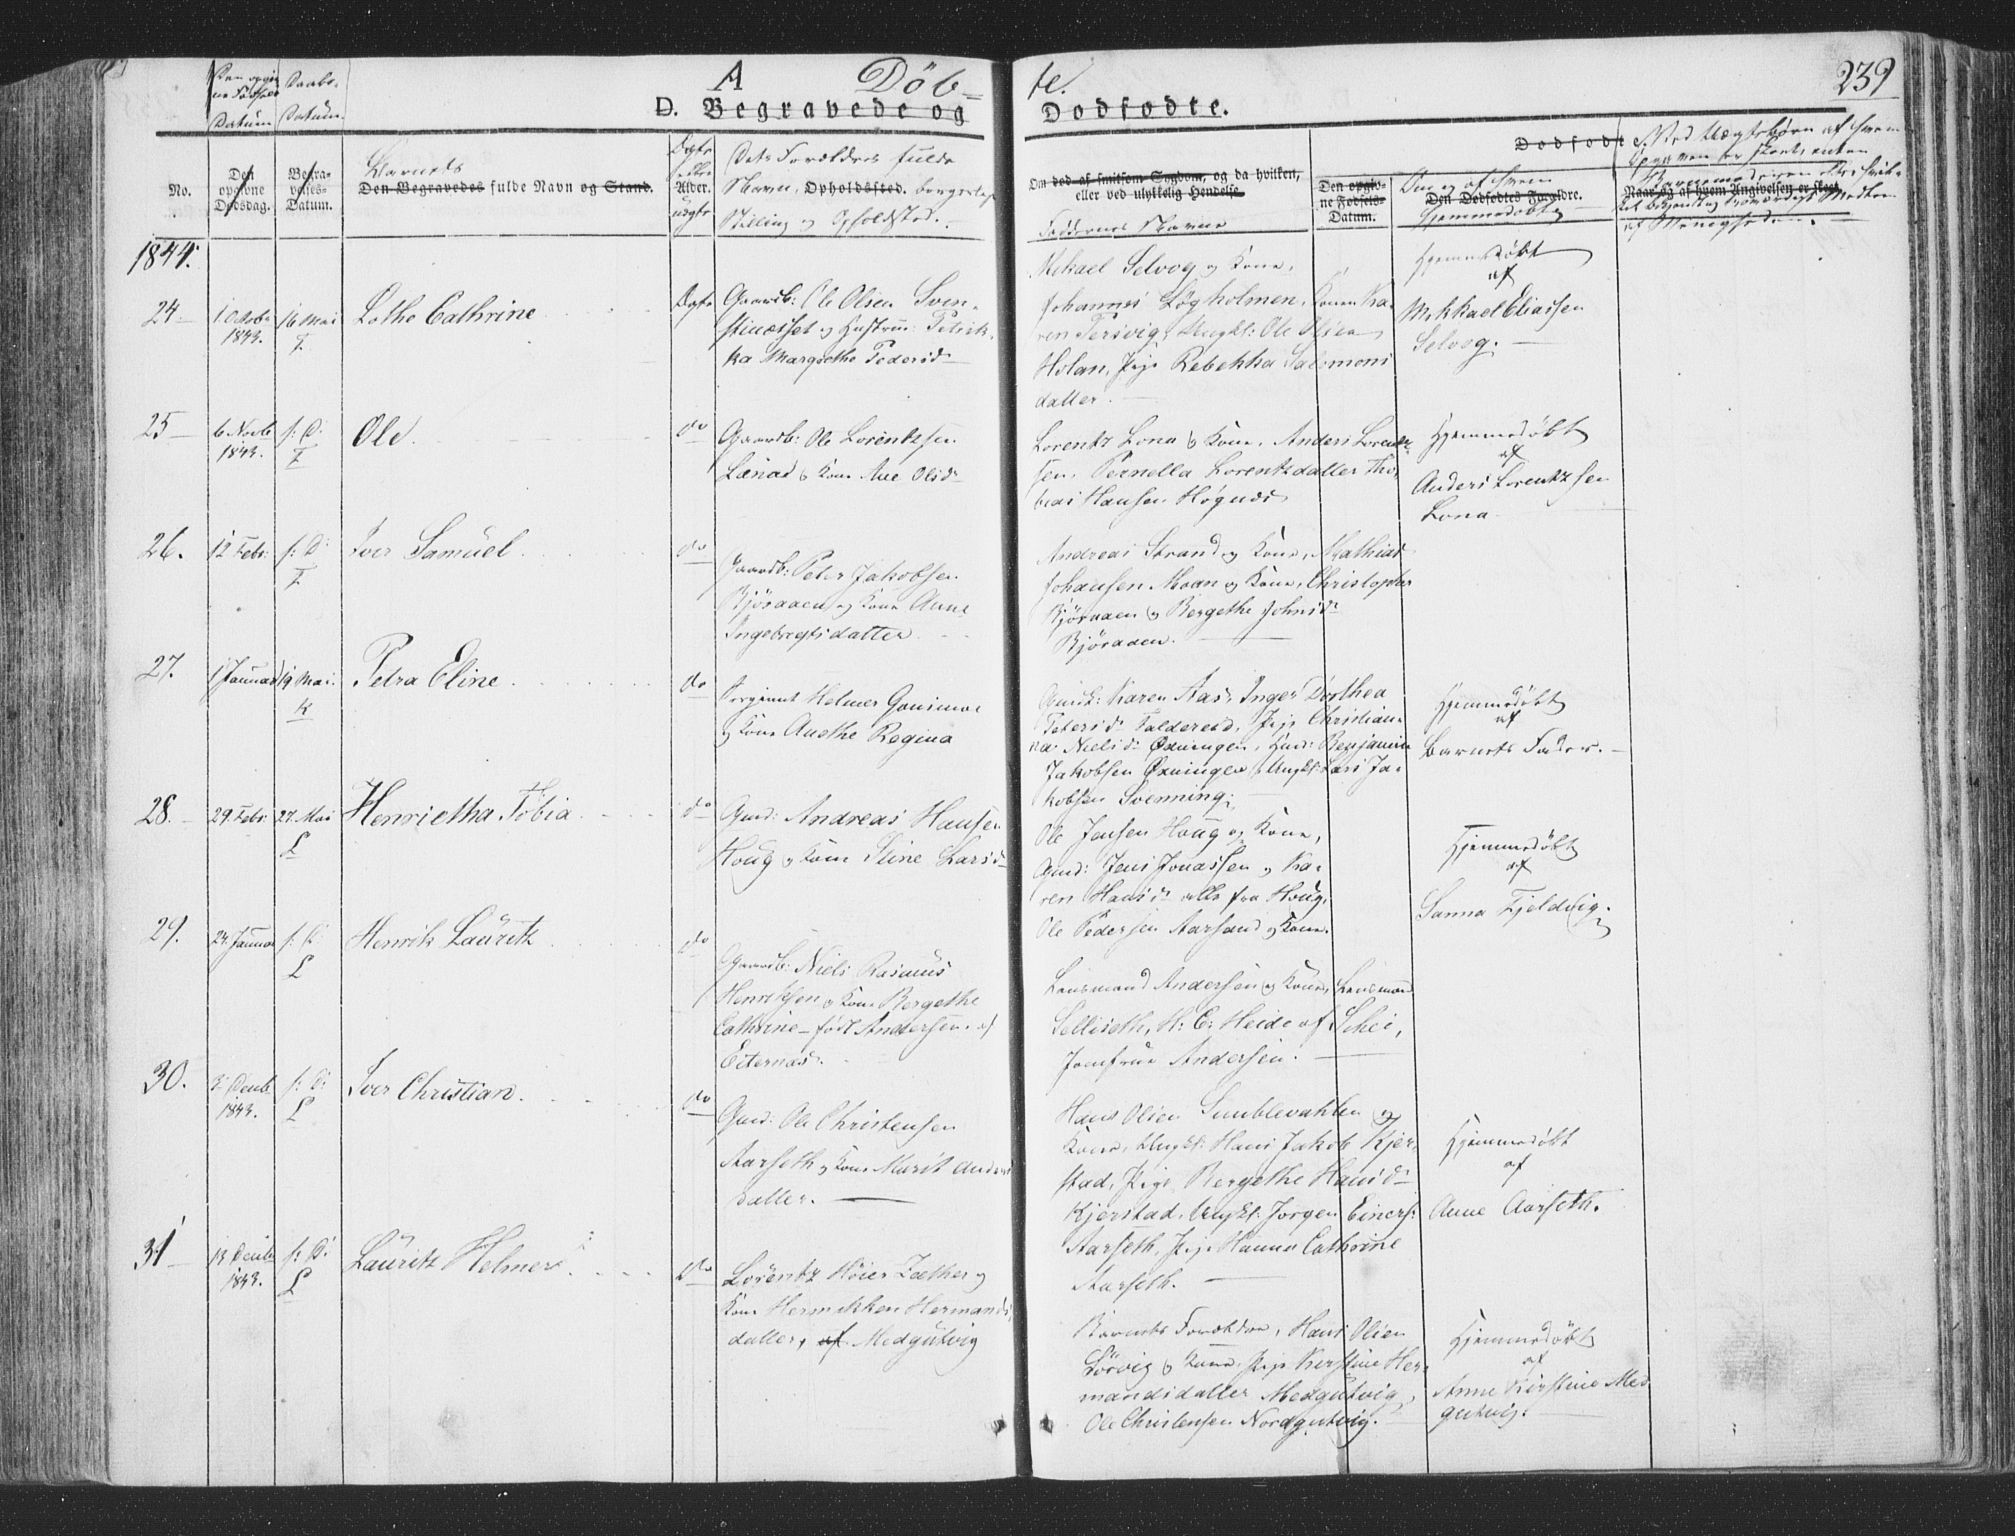 A Döb- te.
239
D. Begravede og Dødfødte.
Den opgiv-
ne Fødsels
Datum
Daabs-
Datum
No.
Den
opgivne
Dødsdag.
Begra-
velses-
Datum.
Barnets
Den Begravedes fulde Navn og Stand.
Ægte
eller
Alder.
uægte
Dets Forældres fulde
Navn, Opholdssted. borgerlige
Stilling og Opholdsted.
Om død af smitsom Sygdom, og da hvilken,
eller ved ulykkelig Hendelse.
Faddernes Navne
Den opgiv-
ne Fødsels-
Datum.
Dødfødte.
Den Dødfødtes Forældre.
Hjemmedøbt
Naar og af hvem Angivelsen er skeet.
af Menigheden.
1844.
24
1 Octob.
1843.
16 Mai
F.
Lothe Cathrine
Ægte
Gaardb: Ole Olsen Sven-
ningsset og Hustru
Margrethe Pedersd.
Mikael Selvog og Kone,
Johannes Løgholmen, Konen Ka-
ren Tersvig, Ungk: Ole Olsen
Holan, Pige Rebekka Salomons
datter.
Hjemmedøbt
af
Mikkael Eliassen
Selvog.
25
6 Novb
1843.
s: D:
F
Ole
do
Gaardb: Ole Lorentzsen
og Kone Ane Olsd.
Lorentz Lona og Kone, Anders Lorentz-
sen, Pernella Lorentzdatter, Tho-
bias Hansen Høgnes
Hjemmedøbt
af
Anders Lorentzsen
Lona
26.
12 Febr.
s: D:
F.
Iver Samuel
do
Gaardb: Peter Jakobsen
Bjøraaen og Kone Anne
Ingebregtsdatter
Andreas Strand og Kone, Mathias
Johansen Moan og Kone, Christopher
Bjøraaen og Bergethe Johnsd.
Bjøraaen.
27.
1 Januar
19 Mai.
K
Petra Eline
do
Sergeant Helmer
og Kone Anethe Regina
Karen Aas, Inger Dorthea
Petersd. Foldereid, Pige Christian-
na Nielsd. Øxningen, Gmd: Benjamin
Jakobsen Øxningen, Ungk: Lars Ja-
kobsen Svenning.
Hjemmedøbt
af
Barnets Fader.
28.
29. Febr.
27. Mai
L
Henrietha Tobia
do
Gmd: Andreas Hansen
Houg og Kone Stine Larsd.
Ole Jensen Houg og Kone,
Gmd: Jens Jonassen og Ka-
ren Hansd. alle fra Houg.
Ole Pedersen Aarsand og Kone.
Hjemmedøbt
af
Sanna Fjeldvig.
29.
24. Januar
s: D:
L
Henrik Lauritz
do
Gaardb: Niels Rasmus
Henriksen og Kone Bergethe
Cathrine født Andersen af
Eiternæs.
Lensmand Andersen og Kone, Lensmand
Selliseth, H: C: Heide af Schei,
Jomfrue Andersen.
30.
Decmb
1843.
s: D:
L
Iver Christian.
do
Gmd: Ole Christensen
Aarseth og Kone Marit Anders
datter.
Hans Olsen Simblevahlen og
Kone, Ungk: Hans Jakob Kjer-
stad, Pige Bergethe Hansd.
Kjerstad, Ungk: Jørgen Einers:
Aarseth, Pige Hanna Cathrine
Aarseth.
Hjemmedøbt
af
Anne Aarseth.
31
13 Decmb
1843.
s: D:
L
Lauritz Helmer
do
Lorentz Höier Zæther og
Kone Hermikken Hermands
datter, af Medgutvig
Barnets Forældre, Hans Olsen
Sörvig og Kone, Pige Kirstine Her-
mandsdatter Medgutvig,
Ole Christensen Nordgutvig.
Hjemmedøbt
af
Anne Kirstine Med-
gutvig.